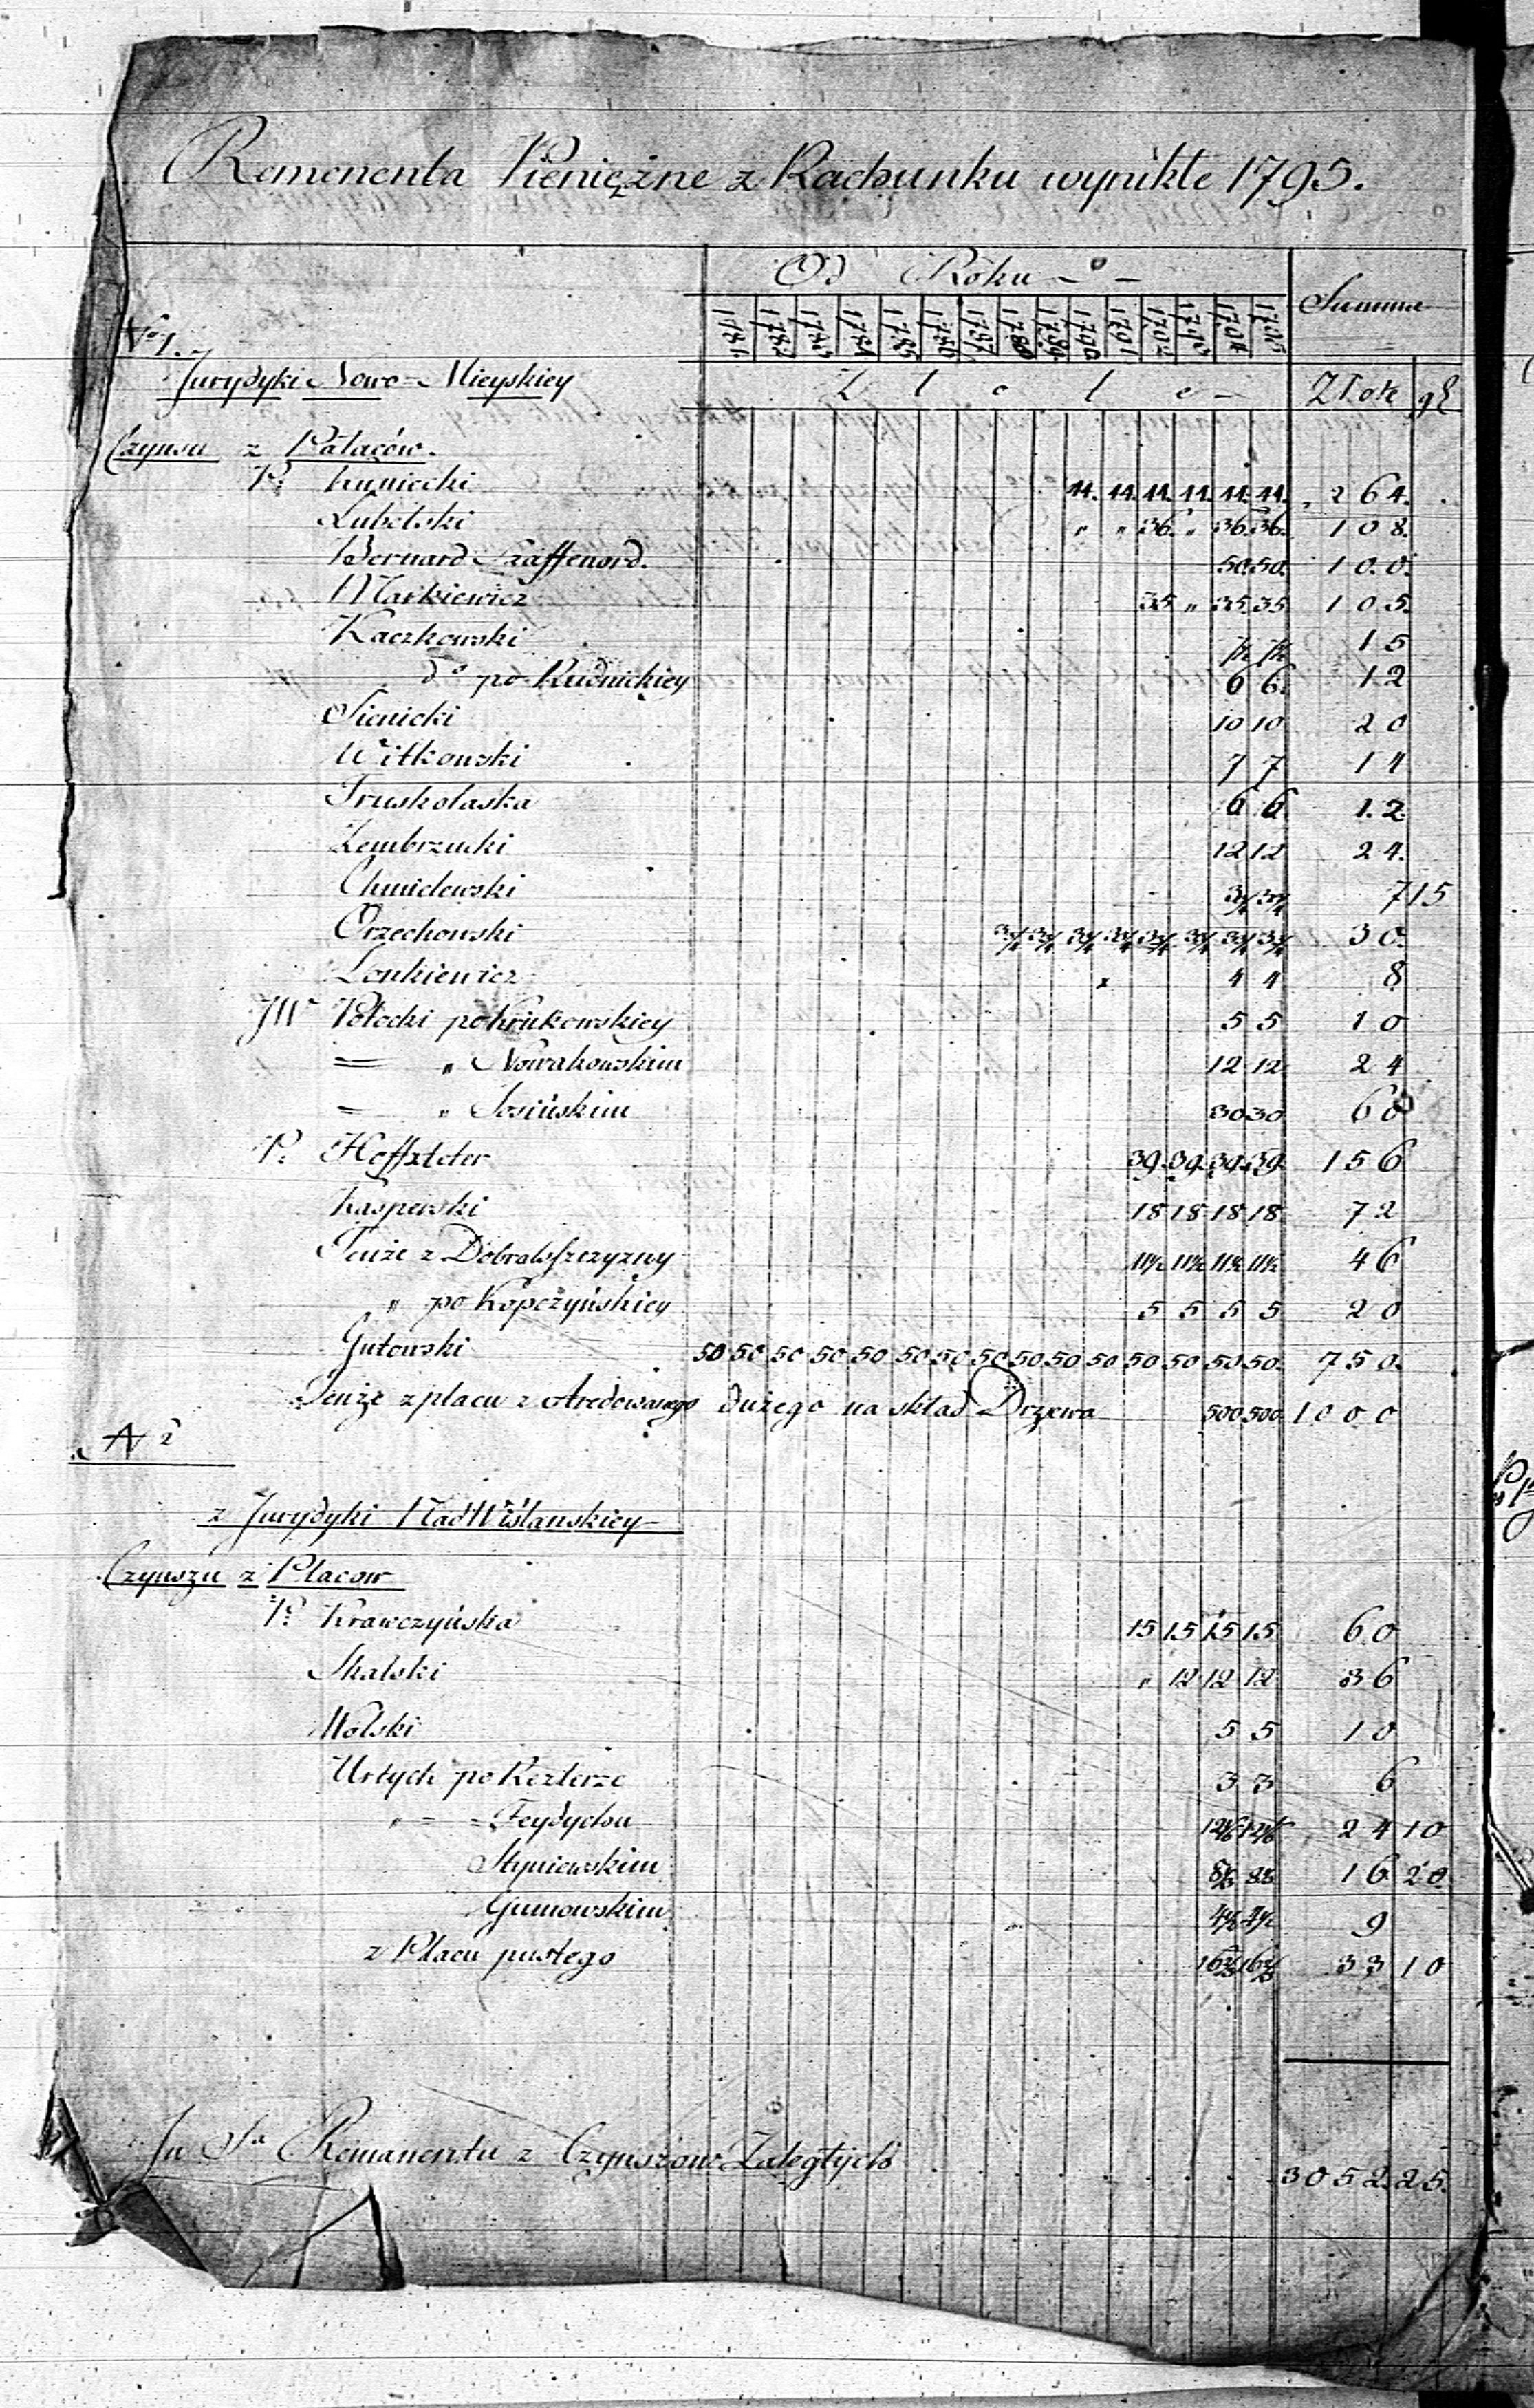 Remenenta Pieniężne z Rachunku wynikłe 1795.
Od Roku
Summa
1781 1782 1783 1784 1785 1786 1787 1788 1789 1790 1791 1792 1793 1794 1795
No 1.
Jurydyki Nowo-Mieyskiey
Z ł o t e
Złote gr
Czynsu z Pałaców.
P. Kuniecki 44. 44. 44. 44. 44. 44. 264.
Lubelski " " 36. " 36. 36. 108.
Bernard 50 50. 100.
Markiewicz 35 " 35 35 105.
Kaczkowski 7½ 7½ 15
do po Rudnickiey 6 6. 12
Sienicki 10 10 20
Witkowski 7 7 14
Truskolaska 6 6 12
Zembrzucki 12 12 24.
Chmielewski 3¾ 3¾ 7 15
Orzechowski 3¾ 3¾ 3¾ 3¾ 3¾ 3¾ 3¾ 3¾ 30.
Lonkiewicz 4 4 8
JW Potocki po Krukowskiey 5 5 10
= " Nowakowskim 12 12 24
= " Sosińskim 30 30 60
P. Hoffsteter 39. 39. 39. 39. 156
Kasperski 18 18 18 18 72
Tenże z 11½ 11½ 11½ 11½ 46
" po Kopczyńskiey 5 5 5 5 20
Gutowski 50 50 50 50 50 50 50 50 50 50 50 50 50 50 50. 750.
Tenże z placu z Aredowanego dużego na skład Drzewa 500 500 1000
N 2
z Jurydyki NadWiślanskiey
Czynszu z Placow
P. Krawczyńska 15 15 15 15 60
Skalski " 12 12 12 36
Wolski 5 5 10
Urtych po Rezlerze 3 3 6
" = = Feydychu 12⅙ 12⅙ 24 10
Styniewskim 8⅓ 8⅓ 16 20
Gumowskim 4½ 4½ 9
z Placu pustego 16⅔ 16⅔ 33 10
Su Sa Remanentu z Czynszow Zaległych 3052. 25.